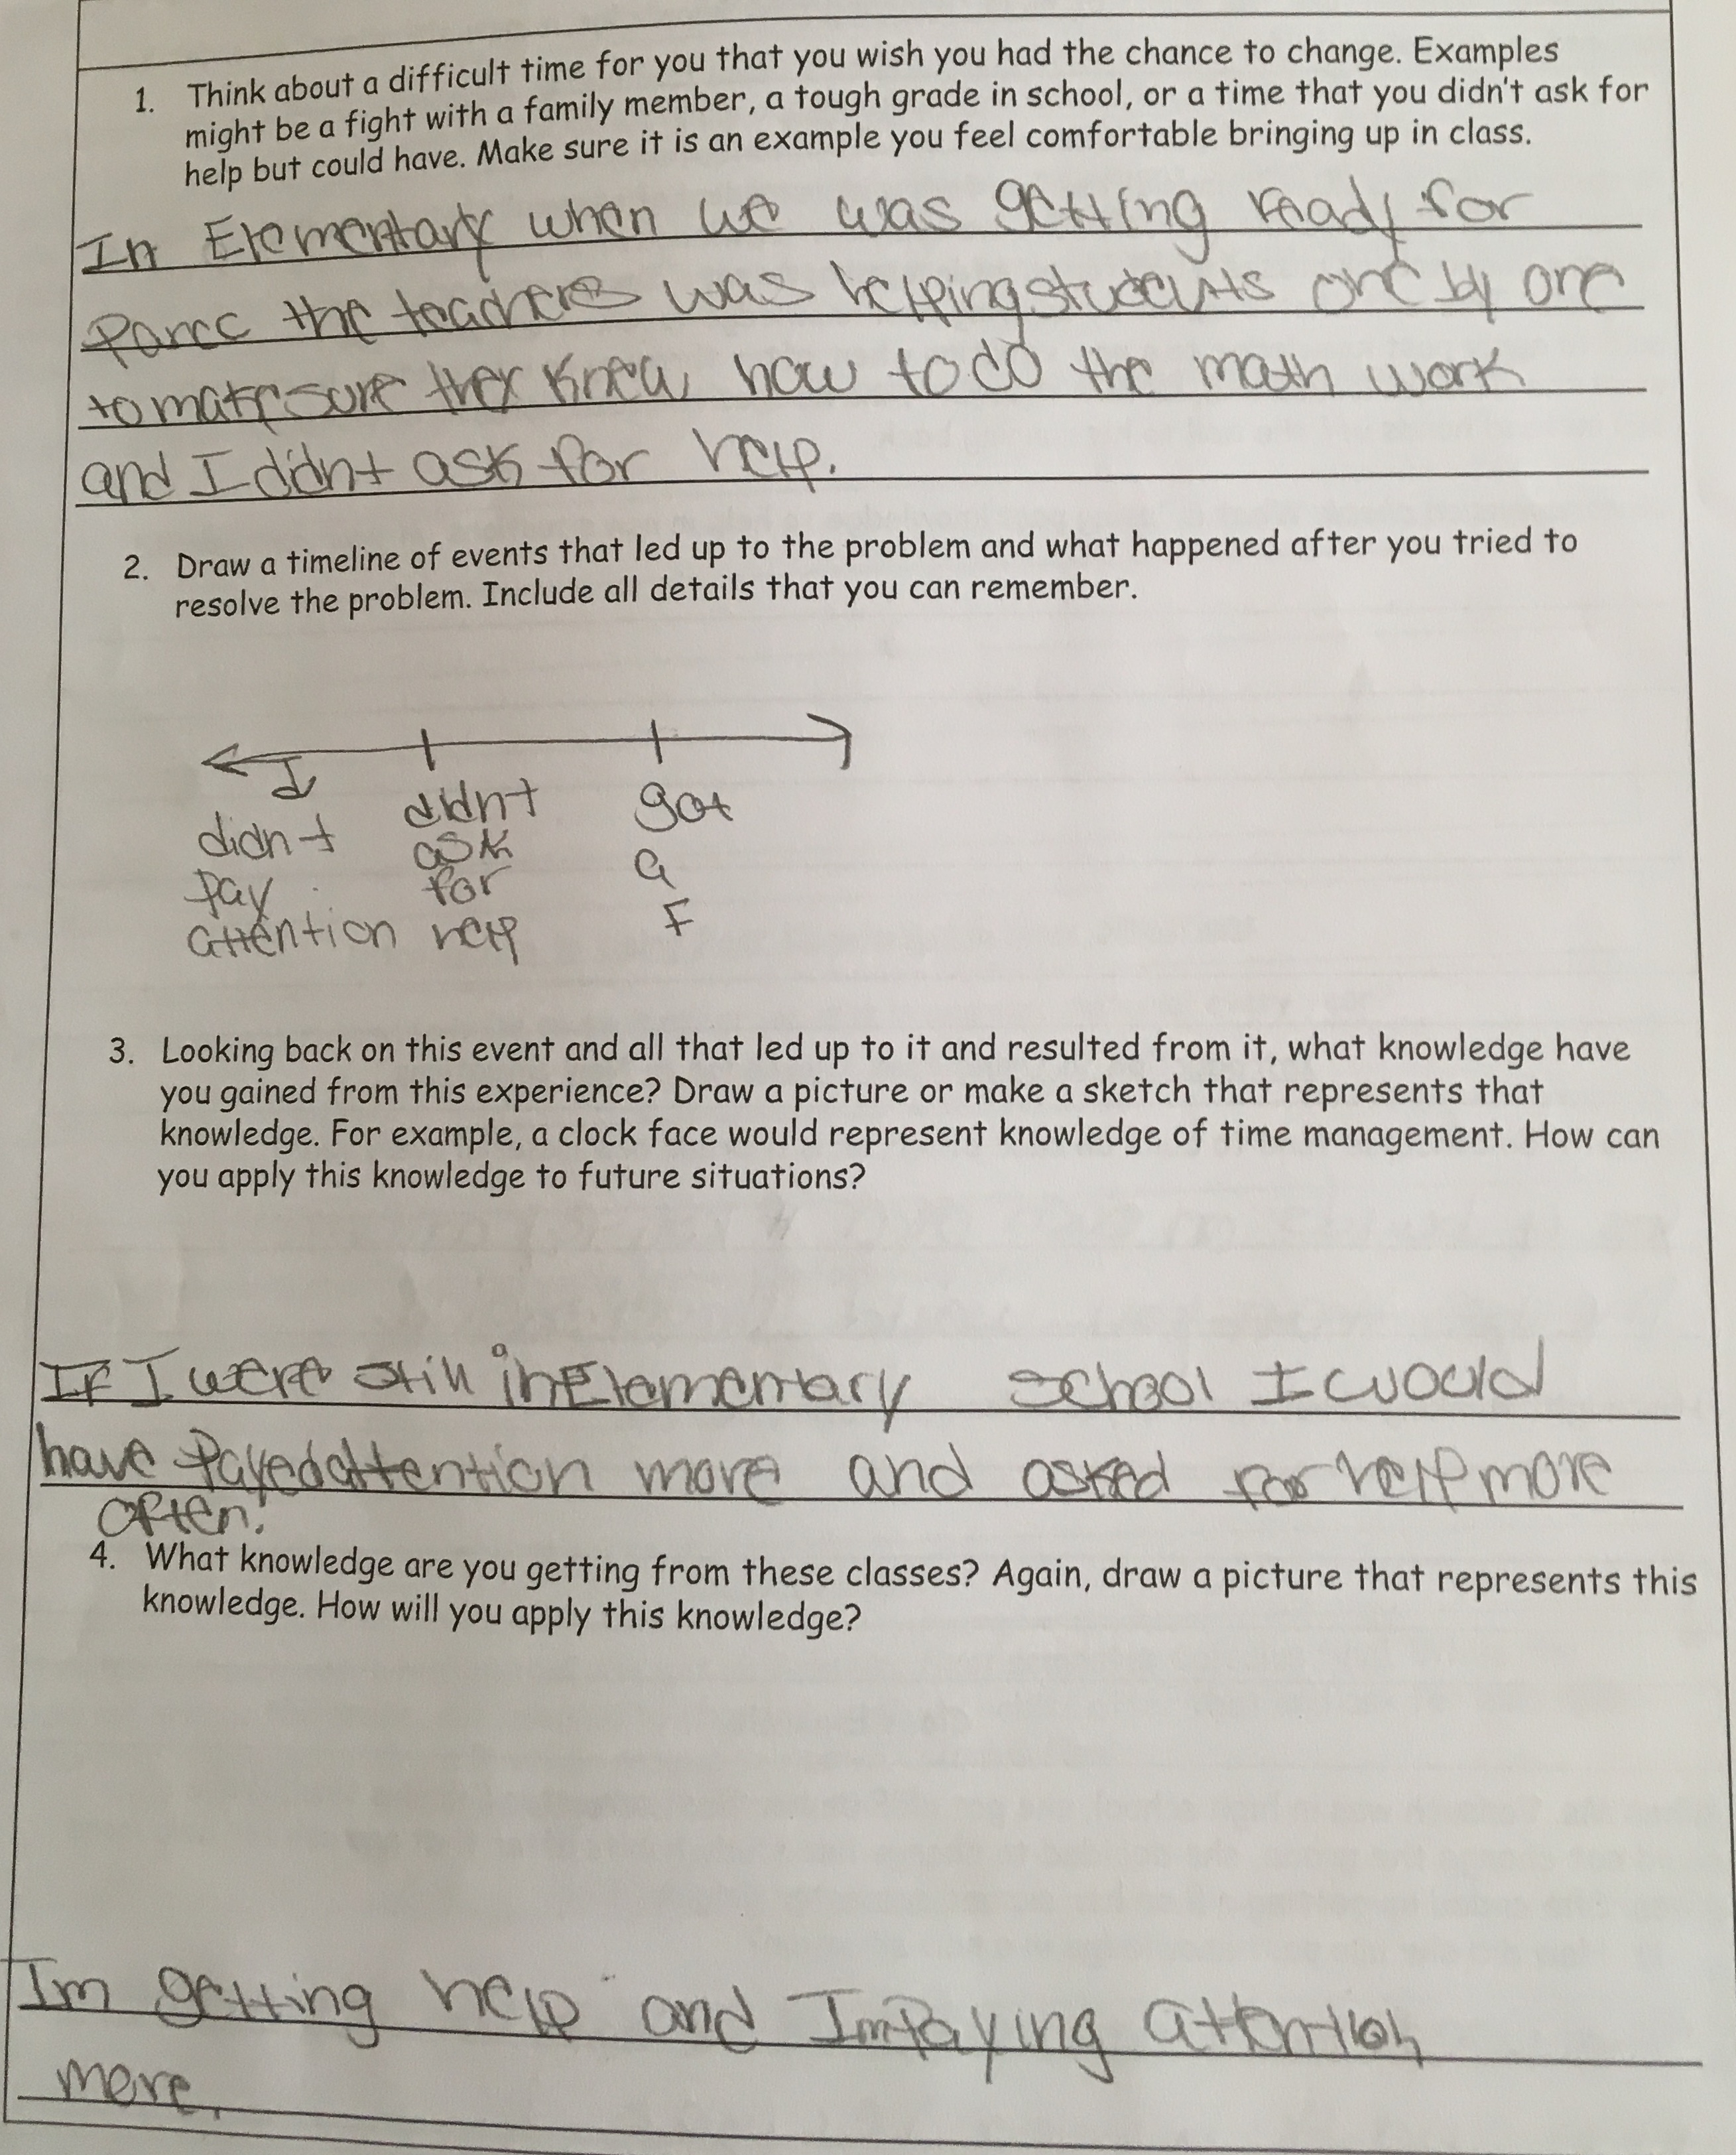 1. Think about a difficult time for you that you wish you had the chance to change. Examples
might be a fight with a family member, a tough grade in school, or a time that you didn't ask for
help but could have. Make sure it is an example you feel comfortable bringing up in class.
In Elementary when we was getting ready for
Parcc the teacheres was helping students one by one
to make sure they knew how to do the math work
and I didnt ask for help.
2. Draw a timeline of events that led up to the problem and what happened after you tried to
resolve the problem. Include all details that you can remember.
I
didnt
pay
attention
didnt
ask
for
help
got
a
F
3. Looking back on this event and all that led up to it and resulted from it, what knowledge have
you gained from this experience? Draw a picture or make a sketch that represents that
knowledge. For example, a clock face would represent knowledge of time management. How can
you apply this knowledge to future situations?
If I were still in Elementary school I would
have Payed attention more and asked for help more
often.
4. What knowledge are you getting from these classes? Again, draw a picture that represents this
knowledge. How will you apply this knowledge?
Im getting help and Im Paying attention
more.